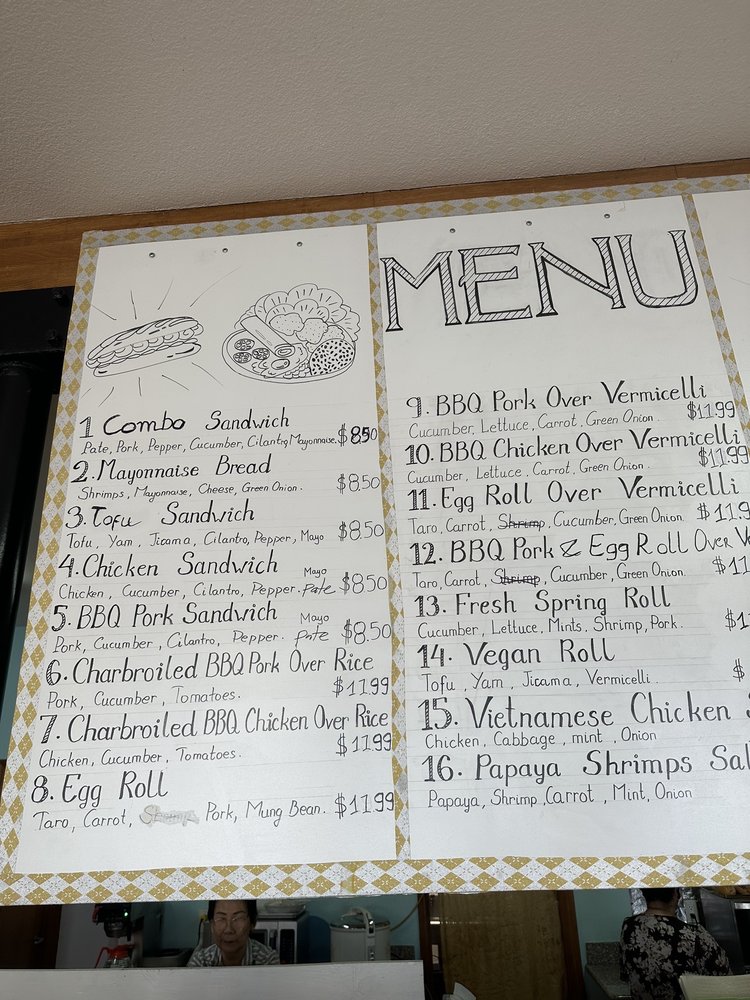 MENU
1 Combo Sandwich
Pate, Pork, Pepper, Cucumber, Cilantro, Mayonnaise. $8.50
2. Mayonnaise Bread
Shrimps, Mayonnaise, Cheese, Green Onion. $8.50
3. Tofu Sandwich
Tofu, Yam, Jicama, Cilantro, Pepper, Mayo $8.50
4. Chicken Sandwich
Mayo
Chicken, Cucumber, Cilantro, Pepper. Pate $8.50
5. BBQ Pork Sandwich
Mayo
Pork, Cucumber, Cilantro, Pepper. Pate $8.50
6. Charbroiled BBQ Pork Over Rice
Pork, Cucumber, Tomatoes. $11.99
7. Charbroiled BBQ Chicken Over Rice
Chicken, Cucumber, Tomatoes. $11.99
8. Egg Roll
Taro, Carrot, Pork, Mung Bean. $11.99
9. BBQ Pork Over Vermicelli
Cucumber, Lettuce, Carrot, Green Onion. $11.99
10. BBQ Chicken Over Vermicelli
Cucumber, Lettuce, Carrot, Green Onion. $11.99
11. Egg Roll Over Vermicelli
Taro, Carrot, Shrimp, Cucumber, Green Onion $11.9
12. BBQ Pork & Egg Roll Over Ve
Taro, Carrot, Shrimp, Cucumber, Green Onion. $11
13. Fresh Spring Roll
Cucumber, Lettuce, Mints, Shrimp, Pork. $1
14. Vegan Roll
Tofu, Yam, Jicama, Vermicelli. $
15. Vietnamese Chicken
Chicken, Cabbage, mint, Onion
16. Papaya Shrimps Sal
Papaya, Shrimp, Carrot, Mint, Onion